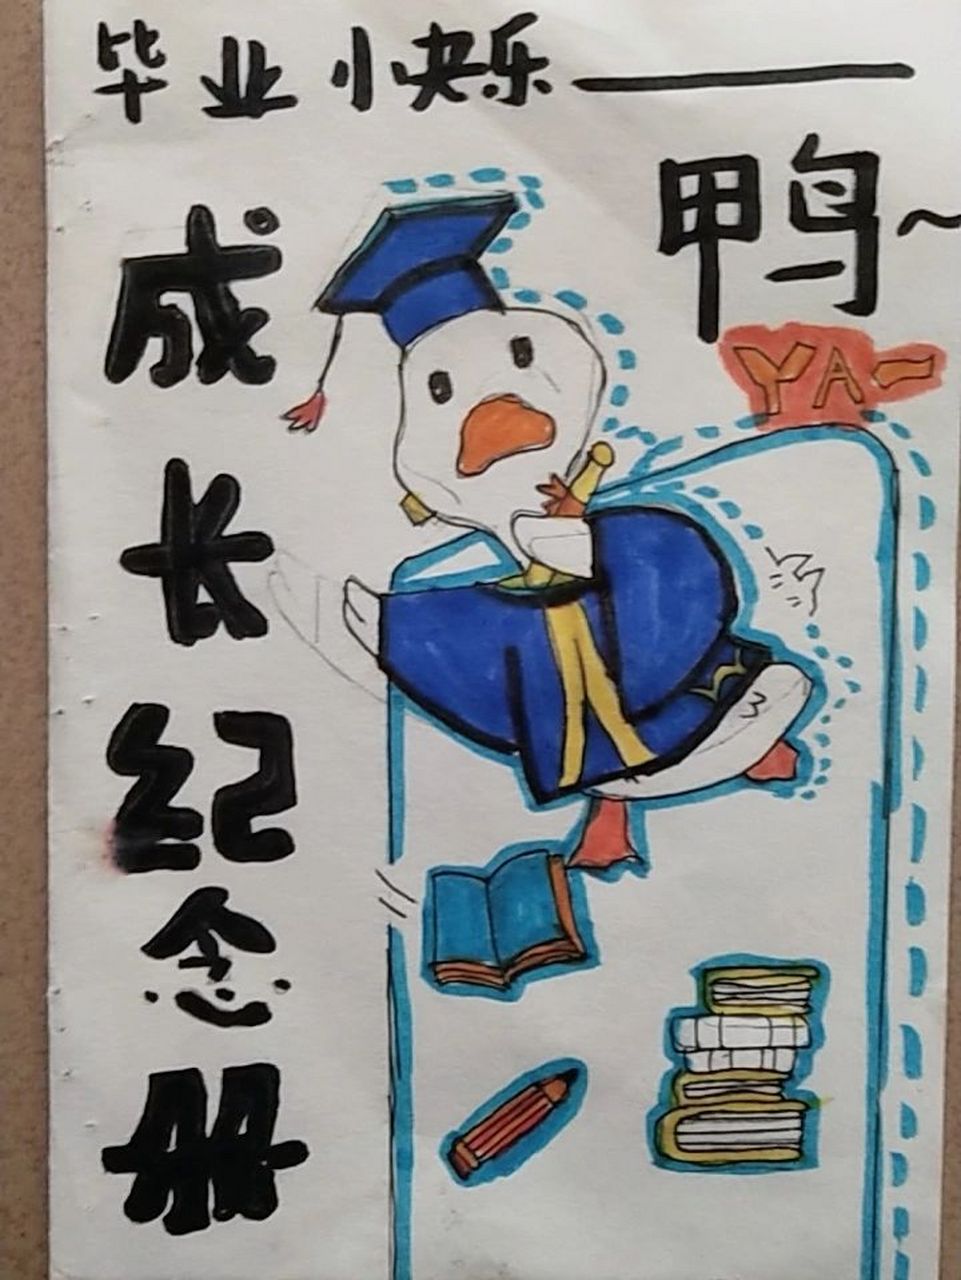 毕业小快乐——
鸭~
YA—
成长纪念册